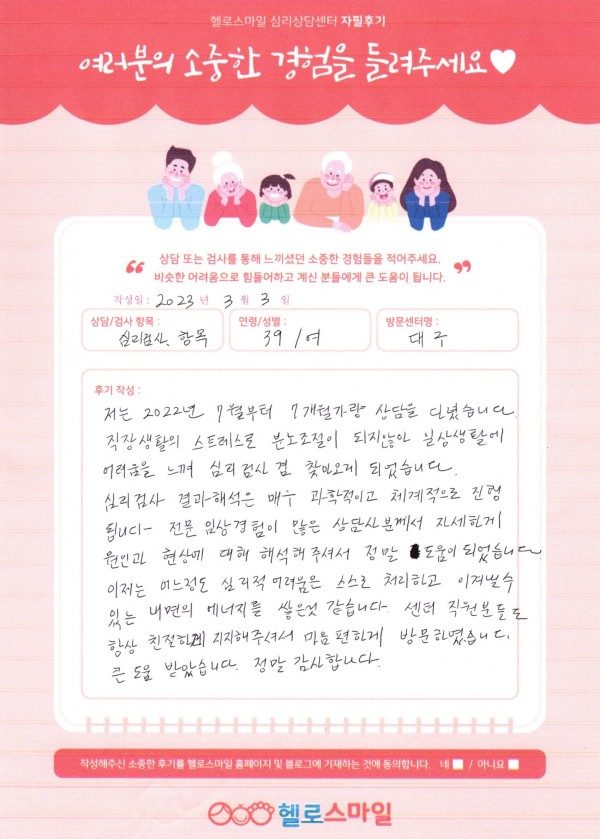 헬로스마일 심리상담센터 자필후기
여러분의 소중한 경험을 들려주세요♥
상담 또는 검사를 통해 느끼셨던 소중한 경험들을 적어주세요.
비슷한 어려움으로 힘들어하고 계신 분들에게 큰 도움이 됩니다.
작성일 : 2023 년 3 월 3 일
상담/검사 항목 :
심리검사, 항목
연령/성별 :
39 / 여
방문센터명 :
대구
후기 작성 :
저는 2022년 7월부터 7개월가량 상담을 다녔습니다.
직장생활의 스트레스로 분노조절이 되지않아 일상생활에
어려움을 느껴 심리검사 겸 찾아오게 되었습니다.
심리검사 결과해석은 매우 과학적이고 체계적으로 진행
됩니다. 전문 임상경험이 많은 상담사분께서 자세하게
원인과 현상에 대해 해석해주셔서 정말 도움이 되었습니다
이제는 어느정도 심리적 어려움은 스스로 처리하고 이겨낼수
있는 내면의 에너지를 쌓은것 같습니다. 센터 직원분들도
항상 친절하게 지지해주셔서 마음 편하게 방문하였습니다.
큰 도움 받았습니다. 정말 감사합니다.
작성해주신 소중한 후기를 헬로스마일 홈페이지 및 블로그에 기재하는 것에 동의합니다. 네 / 아니요
헬로스마일